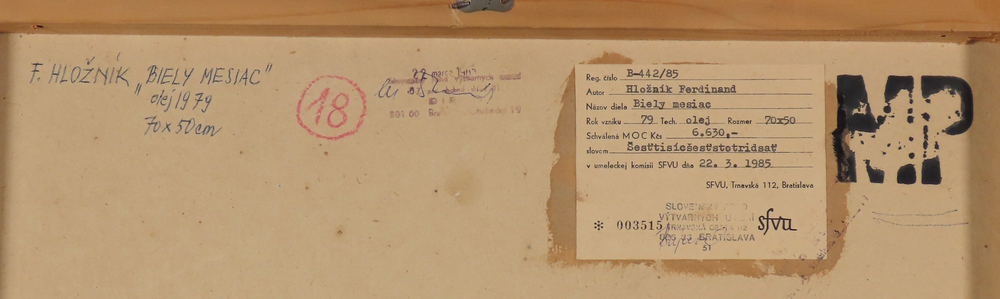 F. HLOŽNÍK „BIELY MESIAC"
olej 1979
70 x 50 cm
18
801 00
Reg. číslo B-442/85
Autor Hložník Ferdinand
Názov diela Biely mesiac
Rok vzniku 79 Tech. olej Rozmer 70x50
Schválená MOC Kčs 6.630,-
slovom Šesťtisícšesťstotridsať
v umeleckej komisii SFVU dňa 22. 3. 1985
SFVU, Trnavská 112, Bratislava
SLOVENSKÝ
VÝTVARNÝCH
* 003515 sfvu
BRATISLAVA
51
MP